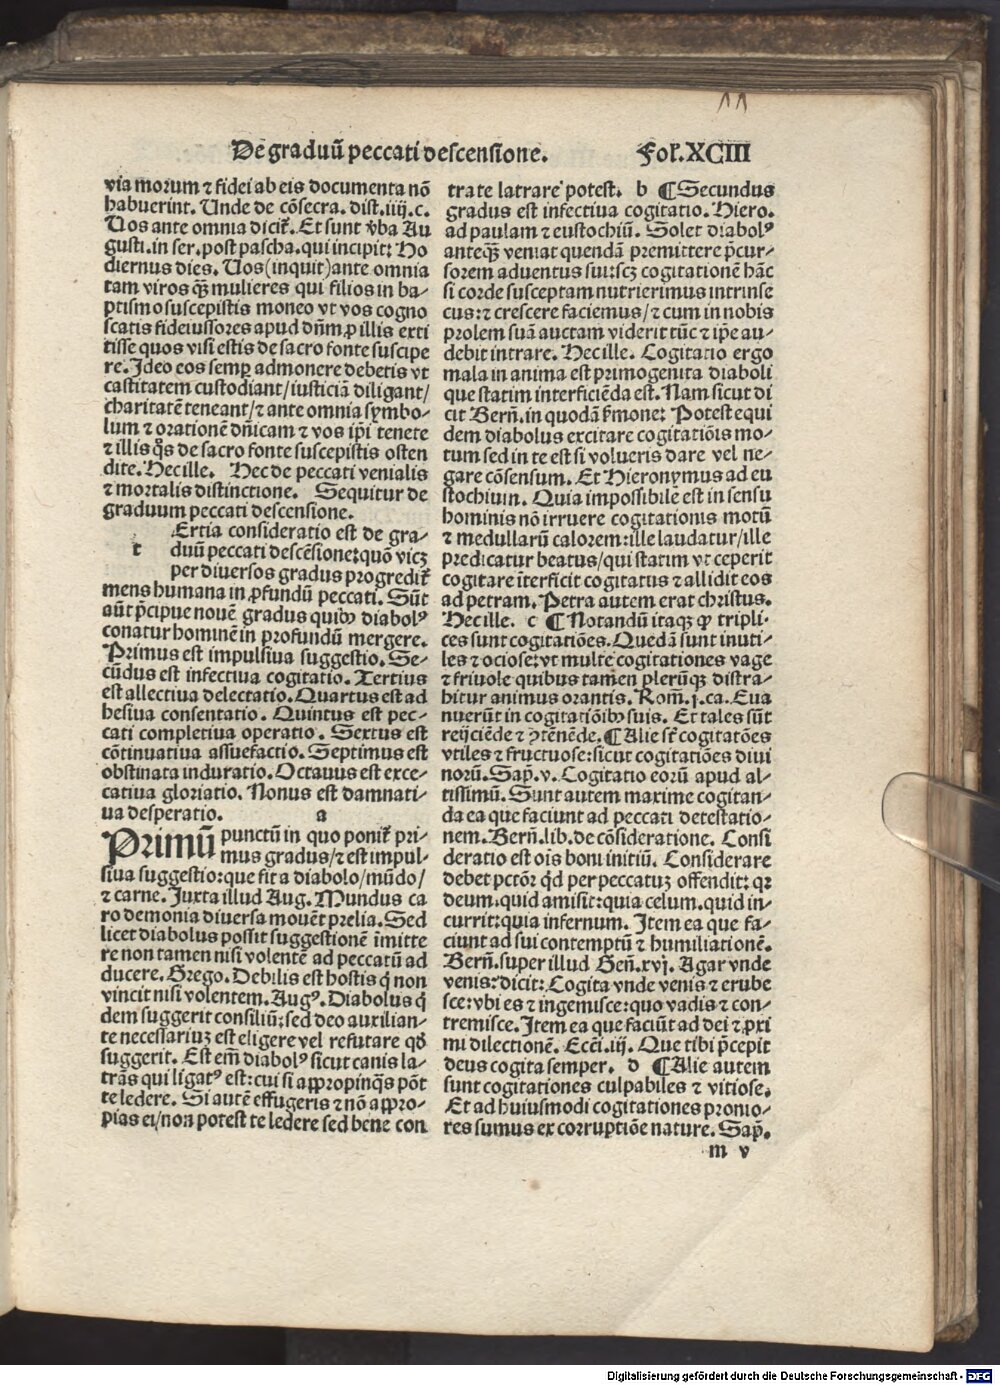 11
De graduū peccati descensione. Fol. XCIII
via morum ⁊ fidei ab eis documenta nō
habuerint. Unde de cōsecra. dist. iiij. c.
Uos ante omnia dicit᷑. Et sunt v̄ba Au
gusti. in ser. post pascha. qui incipit: Ho
diernus dies. Uos (inquit) ante omnia
tam viros qꝫ mulieres qui filios in ba-
ptismo suscepistis moneo vt vos cogno
scatis fideiussores apud dn̄m ꝓ illis exti
tisse quos visi estis de sacro fonte suscipe
re. Ideo eos semꝑ admonere debetis vt
castitatem custodiant/iusticiā diligant/
charitatē teneant/⁊ ante omnia symbo-
lum ⁊ orationē dn̄icam ⁊ vos ip̄i tenete
⁊ illis q̄s de sacro fonte suscepistis osten
dite. Hec ille. Hec de peccati venialis
⁊ mortalis distinctione. Sequitur de
graduum peccati descensione.
t Ertia consideratio est de gra-
duū peccati descēsione: quō vicꝫ
per diuersos gradus progredit᷑
mens humana in ꝓfundū peccati. Sūt
aūt p̄cipue nouē gradus quibꝰ diabolꝰ
conatur hominē in profundū mergere.
Primus est impulsiua suggestio. Se-
cūdus est infectiua cogitatio. Tertius
est allectiua delectatio. Quartus est ad
hesiua consentatio. Quintus est pec-
cati completiua operatio. Sextus est
cōtinuatiua assuefactio. Septimus est
obstinata induratio. Octauus est exce-
catiua gloriatio. Nonus est damnati-
ua desperatio. a
Primū punctū in quo ponit᷑ pri-
mus gradus/⁊ est impul-
siua suggestio: que fit a diabolo/mūdo/
⁊ carne. Juxta illud Aug. Mundus ca
ro demonia diuersa mouēt prelia. Sed
licet diabolus possit suggestionē īmitte
re non tamen nisi volentē ad peccatū ad
ducere. Grego. Debilis est hostis q̇ non
vincit nisi volentem. Augꝰ. Diabolus q̇
dem suggerit consiliū: sed deo auxilian-
te necessariuꝫ est eligere vel refutare qð
suggerit. Est em̄ diabolꝰ sicut canis la-
trās qui ligatꝰ est: cui si appropinq̄s pōt
te ledere. Si autē effugeris ⁊ nō appro-
pias ei/non potest te ledere sed bene con
tra te latrare potest. b ¶ Secundus
gradus est infectiua cogitatio. Hiero.
ad paulam ⁊ eustochiū. Solet diabolꝰ
anteqꝫ veniat quendā premittere p̄cur-
sorem aduentus sui: scꝫ cogitationē hāc
si corde susceptam nutrierimus intrinse
cus: ⁊ crescere faciemus/⁊ cum in nobis
prolem suā auctam viderit tūc ⁊ ip̄e au-
debit intrare. Hec ille. Cogitatio ergo
mala in anima est primogenita diaboli
que statim interficiēda est. Nam sicut di
cit Bern̄. in quodā s̄mone: Potest equi
dem diabolus excitare cogitatiōis mo-
tum sed in te est si volueris dare vel ne-
gare cōsensum. Et Hieronymus ad eu
stochium. Quia impossibile est in sensu
hominis nō irruere cogitationis motū
⁊ medullarū calorem: ille laudatur/ille
predicatur beatus/qui statim vt ceperit
cogitare īterficit cogitatus ⁊ allidit eos
ad petram. Petra autem erat christus.
Hec ille. c ¶ Notandū itaqꝫ ꝙ tripli-
ces sunt cogitatiōes. Quedā sunt inuti-
les ⁊ ociose: vt multe cogitationes vage
⁊ friuole quibus tamen plerūqꝫ distra-
hitur animus orantis. Rom̄. j. ca. Eua
nuerūt in cogitatiōibꝰ suis. Et tales sūt
reijciēde ⁊ ꝯtēnēde. ¶ Alie sūt cogitatōes
vtiles ⁊ fructuose: sicut cogitatiōes diui
norū. Sap̄. v. Cogitatio eorū apud al-
tissimū. Sunt autem maxime cogitan-
da ea que faciunt ad peccati detestatio-
nem. Bern̄. lib. de cōsideratione. Consi
deratio est oīs boni initiū. Considerare
debet pctōr q̇d per peccatuꝫ offendit: qꝛ
deum: quid amisit: quia celum. quid in-
currit: quia infernum. Item ea que fa-
ciunt ad sui contemptū ⁊ humiliationē.
Bern̄. super illud Gen̄. xvj. Agar vnde
venis: dicit: Cogita vnde venis ⁊ erube
sce: vbi es ⁊ ingemisce: quo vadis ⁊ con-
tremisce. Item ea que faciūt ad dei ⁊ ꝓxi
mi dilectionē. Ecc̄i. iij. Que tibi p̄cepit
deus cogita semper. d ¶ Alie autem
sunt cogitationes culpabiles ⁊ vitiose.
Et ad huiusmodi cogitationes pronio-
res sumus ex corruptiōe nature. Sap̄.
m v
Digitalisierung gefördert durch die Deutsche Forschungsgemeinschaft - DFG